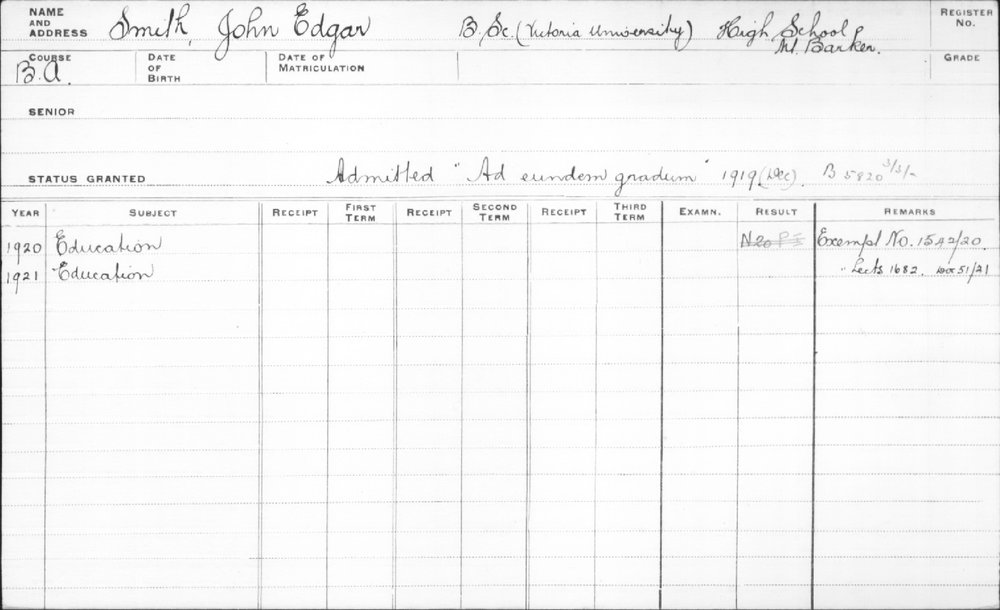 NAME AND ADDRESS Smith, John Edgar B.Sc. (Victoria University) High School, Mt. Barker. REGISTER No.
COURSE B.A. DATE OF BIRTH DATE OF MATRICULATION GRADE
SENIOR
STATUS GRANTED Admitted "Ad eundem gradum" 1919 (Dec). B 5820 3/3/-
YEAR SUBJECT RECEIPT FIRST TERM RECEIPT SECOND TERM RECEIPT THIRD TERM EXAMN. RESULT REMARKS
1920 Education N20 Exempt No. 1542/20.
1921 Education " Lects 1682. 51/21